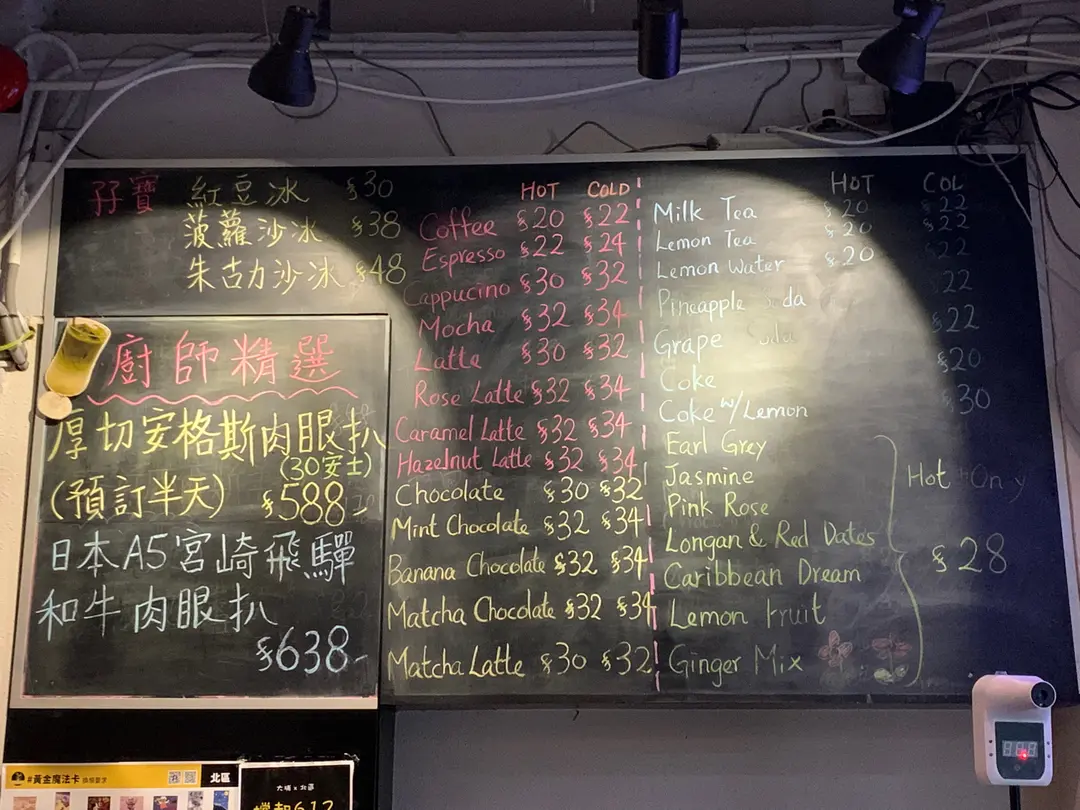 孖寶 紅豆冰 $30
菠蘿沙冰 $38
朱古力沙冰 $48
廚師精選
厚切安格斯肉眼扒
(30安士)
(預訂半天) $588-
日本A5宮崎飛驒
和牛肉眼扒
$638-
HOT COLD
Coffee $20 $22
Espresso $22 $24
Cappucino $30 $32
Mocha $32 $34
Latte $30 $32
Rose Latte $32 $34
Caramel Latte $32 $34
Hazelnut Latte $32 $34
Chocolate $30 $32
Mint Chocolate $32 $34
Banana Chocolate $32 $34
Matcha Chocolate $32 $34
Matcha Latte $30 $32
HOT COL
Milk Tea $20 $22
Lemon Tea $20 $22
Lemon Water $20 $22
Pineapple Soda $22
Grape Soda $22
Coke $20
Coke w/Lemon $30
Earl Grey
Jasmine
Pink Rose
Longan & Red Dates
Caribbean Dream
Lemon Fruit
Ginger Mix
Hot Only
$28
#黃金魔法卡
北區
大埔 x 北區